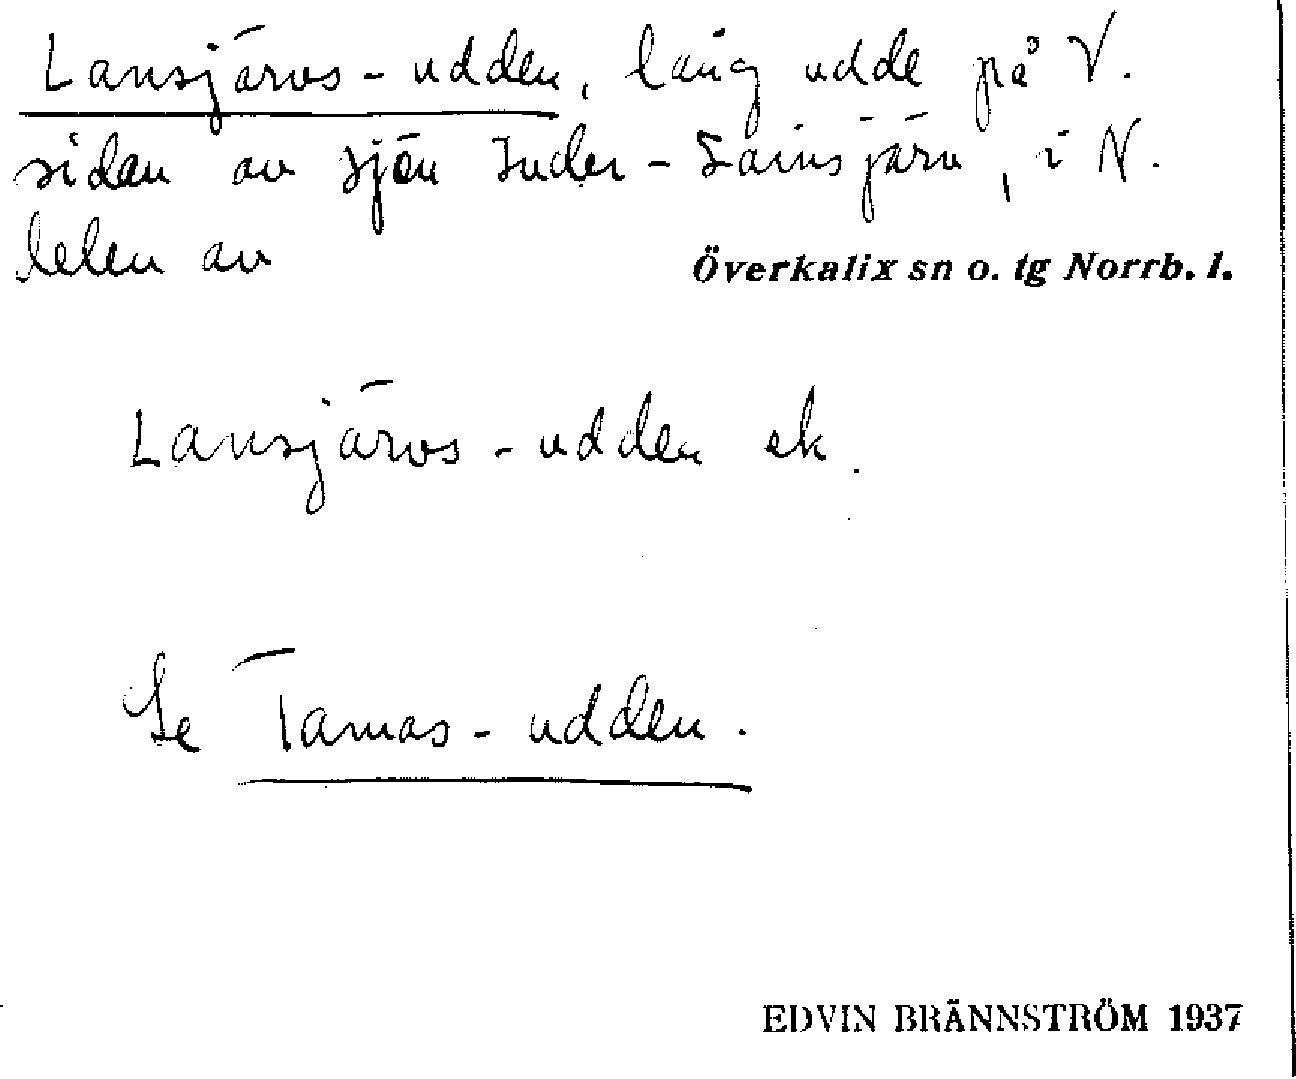 Lansjärvs-udden, lång udde på V.
sidan av sjön Inder-Lansjärv, i N.
delen av
Överkalix sn o. tg Norrb. l.
Lansjärvs-udden ek.
Se Tarmas-udden.
EDVIN BRÄNNSTRÖM 1937